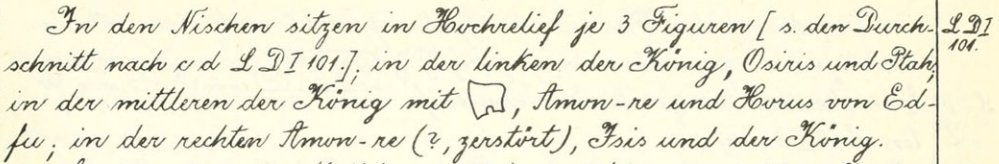 In den Nischen sitzen in Hochrelief je 3 Figuren [s. den Durch- L D I
schnitt nach c d L D I 101.]; in der linken der König, Osiris und Ptah, 101.
in der mittleren der König mit , Amon-re und Horus von Ed-
fu; in der rechten Amon-re (?, zerstört), Isis und der König.